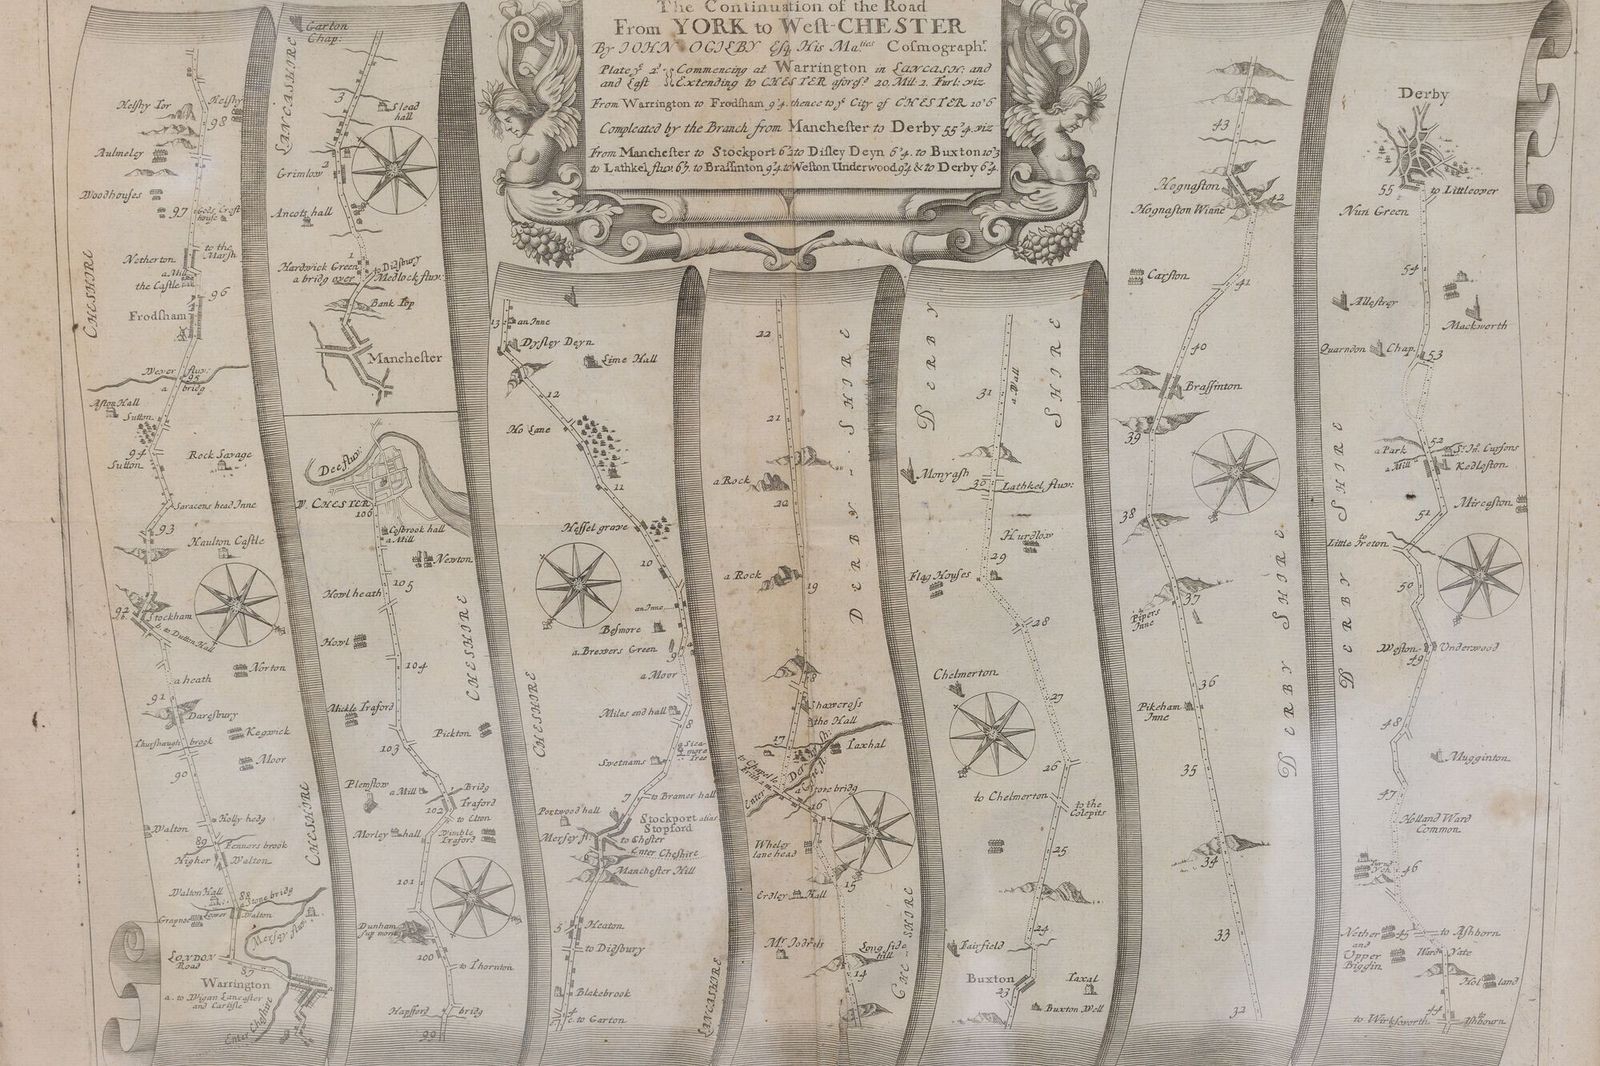 The Continuation of the Road
From YORK to West-CHESTER
By JOHN OGILBY Esq. His Maties Cosmographr.
Plate ye 2d. Commencing at Warrington in LANCASH: and
and last Extending to CHESTER aforesd. 20. Mil. 2. Furl: viz
From Warrington to Frodsham 9'4. thence to ye City of CHESTER 10'6
Compleated by the Branch from Manchester to Derby 55'4. viz
From Manchester to Stockport to Disley Deyn to Buxton 10'3
to Lathkel fluv. 6'7. to Brassinton 9'4. to Weston Underwood 9'4 & to Derby 6'4.
CHESHIRE
Helsby Tor
Helsby
98
Aulmeley
Woodhouses
97
Netherton
to the Marsh
a Mill
the Castle
96
Frodsham
Wever fluv:
95
a bridg
Aston Hall
Sutton
94
Sutton
Rock Savage
Saracens head Inne
93
Haulton Castle
92
Stockham
to Dutton Hall
Norton
a heath
91
Daresbury
Kegwick
Thurshaugh brook
Moor
90
CHESHIRE
Holly hedg
Walton
89
Penners brook
Higher Walton
Walton Hall
88
Stone bridg
Lower Walton
Mersey fluv:
LONDON Road
87
Warrington
a. to Wigan Lancaster
and Carlisle
Enter Cheshire
LANCASHIRE
Garton
Chap:
3
Slead
hall
2
Grimlow
Ancots hall
1
Hardwick Green
to Didsbury
a bridg over
Medlock fluv:
Bank Top
Manchester
Dee fluv:
W. CHESTER
106
Cosbrook hall
a Mill
Newton
105
Howl heath
Howl
104
CHESHIRE
Mickle Traford
Pickton
103
Plemstow
a Mill
Bridg
Traford
102
to Elton
Morley hall
Wimble
Traford
101
Dunham
sup mont
100
to Thornton
Hapsford bridg
99
13
an Inne
Dysley Deyn
Lime Hall
12
Ho Lane
11
Hessel grove
10
an Inne
Besmore
a Brewers Green
9
a Moor
CHESHIRE
Miles end hall
8
Sica-
more
Tree
Swetnams
7
to Bramer hall
Portwood hall
Stockport alias
Stopford
Mersey fl:
to Chester
Enter Cheshire
Manchester Hill
5
Heaton
to Didsbury
Blakebrook
c. to Garton
LANCASHIRE
22
DERBY-SHIRE
21
a Rock
20
a Rock
19
18
Shawcross
the Hall
17
Taxhal
Enter
a Stone bridg
16
Wheler
lane head
15
Erdley Hall
Long side
hill
14
CHESHIRE
DERBY SHIRE
31
a Wall
Monyash
30
Lathkel fluv:
Hurdlow
29
Flag Houses
28
Chelmerton
27
26
to Chelmerton
to the
Colepits
25
24
Fairfield
Buxton
23
Taxal
Buxton Well
43
Hognaston
42
Hognaston Winne
Carston
41
40
Brassinton
39
38
37
Pipers
Inne
36
Pikeham
Inne
35
34
33
32
DERBY SHIRE
Derby
55
to Littleover
Nun Green
54
Allestrey
Mackworth
Quarndon
Chap.
53
a Park
52
Sr. Jn. Cursons
a Mill
Kedleston
51
Mircaston
Little Ireton
50
DERBY SHIRE
Weston Underwood
49
48
Mugginton
47
Holland Ward
Common
46
Nether
and
Upper
Biggin
45
to Ashborn
Ward Yate
Holland
44
to Wirksworth
to Ashbourn